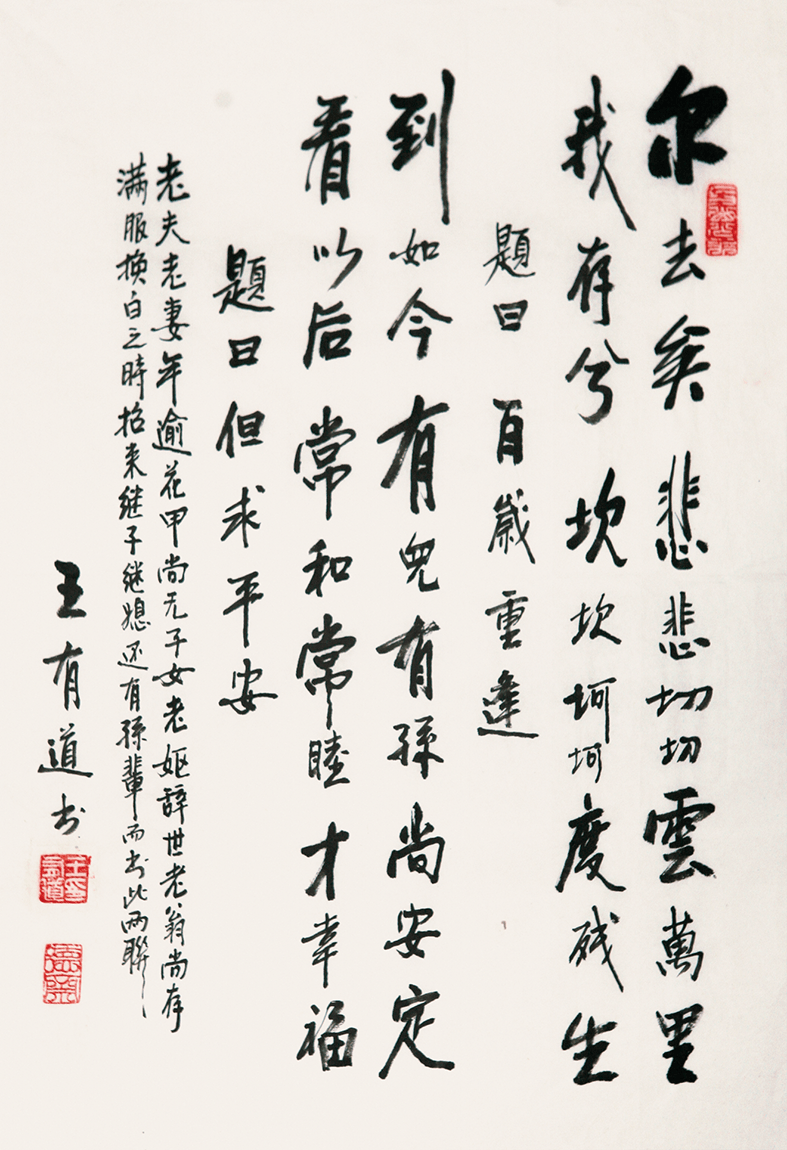 尔去矣悲悲切切雲萬里
我存兮坎坎坷坷度残生
題曰百歲重逢
到如今有兒有孫尚安定
看以后常和常睦才幸福
題曰但求平安
老夫老妻年逾花甲尚无子女老妪辞世老翁尚存
满服换白之時招来继子继媳还有孫輩而书此两聯
王有道书